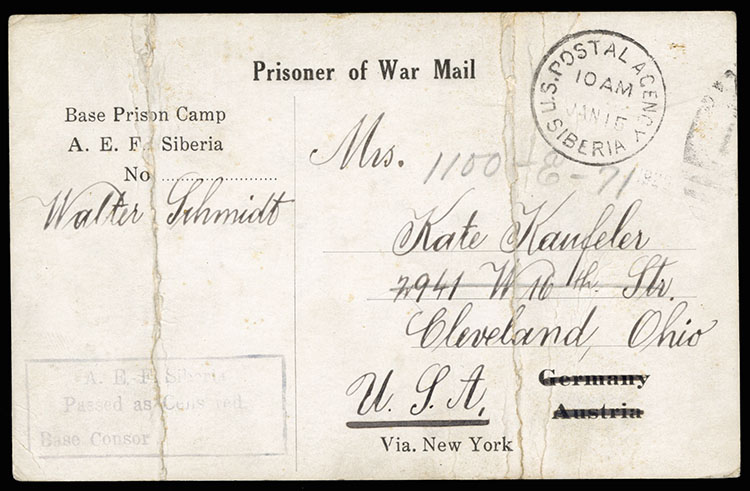 Prisoner of War Mail
U.S. POSTAL AGENCY
10 AM
JAN 15
SIBERIA
Base Prison Camp
A. E. F. Siberia
No ....................
Walter Schmidt
Mrs.
1100 - 71
Kate Kaufeler
2941 W 16th. Str.
Cleveland, Ohio
U. S. A.
Germany
Austria
Via. New York
A. E. F. Siberia
Passed as Censored
Base Censor